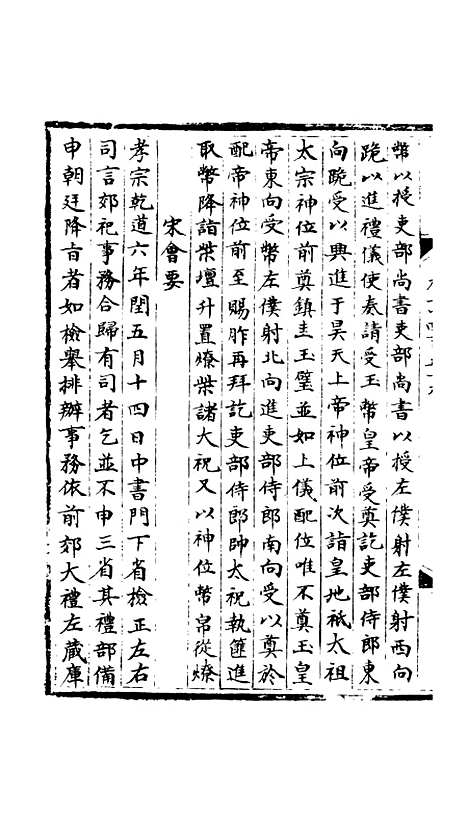 幣以授吏部尚書吏部尚書以授左僕射左僕射西向
跪以進禮儀使奏請受玉幣皇帝受奠訖吏部侍郎東
向跪受以興進于昊天上帝神位前次詣皇地祇太祖
太宗神位前奠鎮圭玉璧並如上儀配位唯不奠玉皇
帝東向受幣左僕射北向進吏部侍郎南向受以奠於
配帝神位前至賜胙再拜訖吏部侍郎帥太祝執篚進
取幣降詣柴壇升置燎柴諸大祝又以神位幣帛從燎
宋會要
孝宗乾道六年閏五月十四日中書門下省檢正左右
司言郊祀事務合歸有司者乞並不申三省其禮部備
申朝廷降旨者如檢舉排辦事務依前郊大禮左藏庫